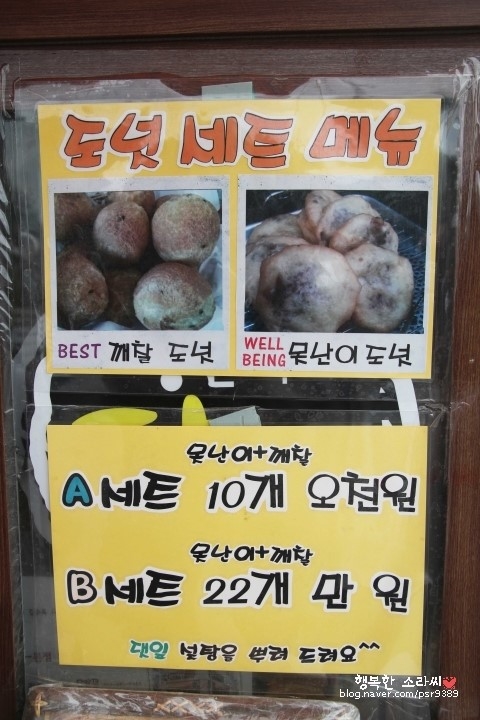 도넛 세트 메뉴
BEST 깨찰 도넛
WELL BEING 못난이도넛
못난이+깨찰
A세트 10개 오천원
못난이+깨찰
B세트 22개 만 원
설탕을 뿌려 드려요^^
행복한 소라씨
blog.naver.com/psr9389